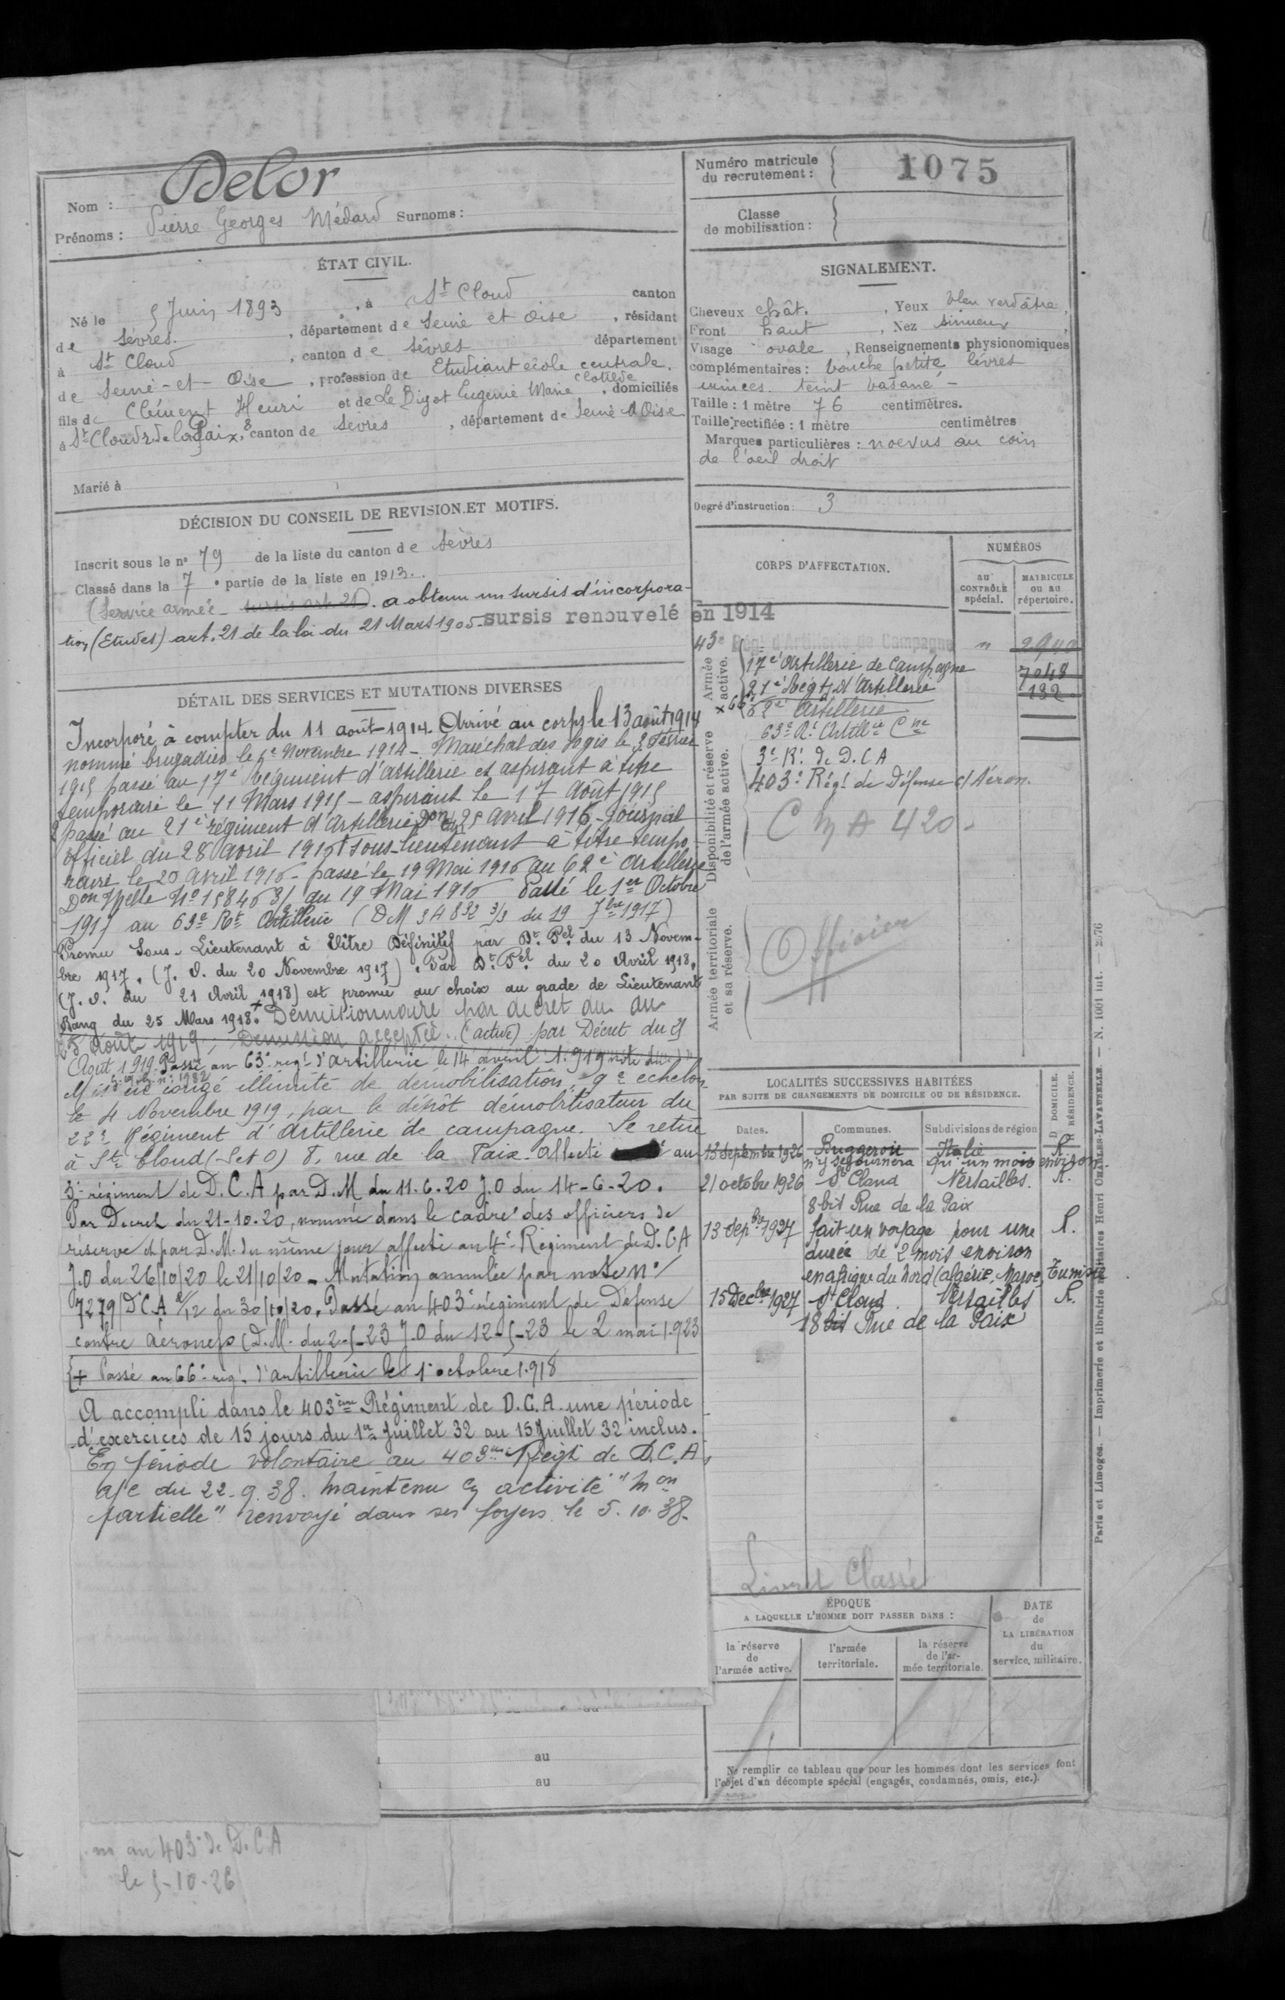 Nom : Delor
Prénoms : Pierre Georges Médard Surnoms :
ÉTAT CIVIL.
Né le 5 Juin 1893, à St Cloud canton
de Sèvres, département de Seine et Oise, résidant
à St Cloud, canton de Sèvres département
de Seine-et-Oise, profession de Etudiant école centrale.
fils de Clément Henri et de Le Bigot Eugenie Marie Clotilde, domiciliés
à St Cloud r de la Paix, 8 canton de Sèvres, département de Seine et Oise
Marié à
DÉCISION DU CONSEIL DE REVISION ET MOTIFS.
Inscrit sous le n° 79 de la liste du canton de Sèvres
Classé dans la 7e partie de la liste en 1913.
(Service armée - sursis art. 21). a obtenu un sursis d'incorpora-
tion (Etudes) art. 21 de la loi du 21 Mars 1905- sursis renouvelé en 1914
DÉTAIL DES SERVICES ET MUTATIONS DIVERSES
Incorporé à compter du 11 août 1914. Arrivé au corps le 13 août 1914
nommé brigadier le 5e Novembre 1914 - Maréchal des logis le 2 Février
1915 passé au 17e régiment d'artillerie et aspirant à titre
temporaire le 11 Mars 1915 - aspirant le 17 août 1915
passé au 21e régiment d'Artillerie Don du 25 avril 1916 - Journal
officiel du 28 avril 1916 sous-lieutenant à titre tempo-
raire le 20 avril 1916 - passé le 19 Mai 1916 au 62e Artillerie
Don Mielle No 15846 3/ du 19 Mai 1916 Passé le 1er Octobre
1917 au 63e Rt Artillerie (DM 34832 3/3 du 19 7bre 1917)
Promu Sous-Lieutenant à Titre Définitif par Dt. Pel. du 13 Novem-
bre 1917. (J. O. du 20 Novembre 1917). Par Dt. Pel. du 20 Avril 1918,
(J. O. du 21 Avril 1918) est promu au choix au grade de Lieutenant
Rang du 25 Mars 1918. + Démissionnaire par décret du au
25 Août 1919, Démission acceptée (active) par Décret du 25
Août 1919. Passé au 63e régt d'artillerie le 14 avril 1919
Mis en congé illimité de démobilisation, 9e échelon
le 4 Novembre 1919, par le dépôt démobilisateur du
22e Régiment d'Artillerie de campagne. Se retire
à St Cloud (S et O) 8, rue de la Paix. Affecté au
3e régiment de D.C.A par D.M du 11.6.20 J.O du 14-6-20.
Par Décret du 21-10-20, nommé dans le cadre des officiers de
réserve et par D.M. du même jour affecté au 4e Régiment de D.C.A
J.O du 26/10/20 le 21/10/20 - Mutation annulée par note No
7279/DCA 2/12 du 30/10/20. Passé au 403e régiment de Défense
contre Aéronefs (D.M. du 2-5-23 J.O du 12-5-23 le 2 mai 1923
(+ Passé au 66e régt d'artillerie le 1er octobre 1918
A accompli dans le 403ème Régiment de D.C.A. une période
d'exercices de 15 jours du 1er Juillet 32 au 15 Juillet 32 inclus.
En période volontaire au 403me Régt de D.C.A,
a/c du 22.9.38. Maintenu en activité "Mon
partielle" renvoyé dans ses foyers le 5.10.38.
au
au
au 403e de D.C.A
le 5-10-26
Numéro matricule du recrutement : 1075
Classe de mobilisation :
SIGNALEMENT.
Cheveux chât., Yeux bleu verdâtre,
Front haut, Nez sinueux,
Visage ovale, Renseignements physionomiques
complémentaires : bouche petite lèvres
minces. teint basané -
Taille : 1 mètre 76 centimètres.
Taille rectifiée : 1 mètre centimètres
Marques particulières : noevus au coin
de l'oeil droit
Degré d'instruction : 3
CORPS D'AFFECTATION.
NUMÉROS
AU CONTRÔLE spécial.
MATRICULE OU AU répertoire.
Armée active.
43e Régt d'Artillerie de Campagne
17e Artillerie de Campagne 7048
21e Régt d'Artillerie 132
x 66e
62e Artillerie
63e Rt Artillie Cne
Disponibilité et réserve de l'armée active.
3e Rt de D.C.A
403e Régt de Défense c/ Aéron.
C M A 420-
Armée territoriale et sa réserve.
Officier
LOCALITÉS SUCCESSIVES HABITÉES
PAR SUITE DE CHANGEMENTS DE DOMICILE OU DE RÉSIDENCE.
Dates. Communes. Subdivisions de région D DOMICILE. R RÉSIDENCE.
13 Septembre 1926 Buggerou Italie R.
n'y séjournera qu'un mois environ.
21 octobre 1926 St Cloud Versailles. R.
8 bis Rue de la Paix
13 Sepbre 1927 fait un voyage pour une R.
durée de 2 mois environ
en afrique du Nord (algérie, Maroc, Tunisie
15 Decbre 1927 St Cloud. Versailles R.
18 bis Rue de la Paix
Livret Classé
ÉPOQUE
A LAQUELLE L'HOMME DOIT PASSER DANS :
la réserve de l'armée active.
l'armée territoriale.
la réserve de l'armée territoriale.
DATE de LA LIBÉRATION du service militaire.
Ne remplir ce tableau que pour les hommes dont les services font
l'objet d'un décompte spécial (engagés, condamnés, omis, etc.).
Paris et Limoges. — Imprimerie et librairie militaires Henri CHARLES-LAVAUZELLE. — N. 1001 int. — 2-76